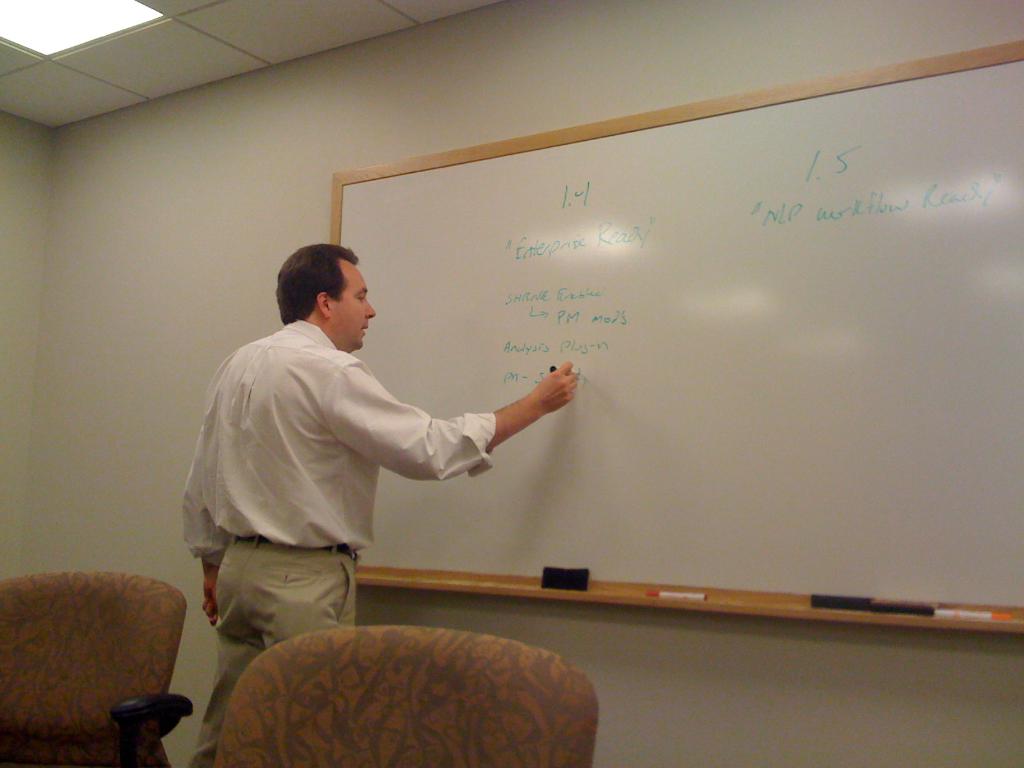 1.4
"Enterprise Ready"
SHRINE Enabled
↳ PM mods
Analysis Plug-n
PM-
1.5
"NLP workflow Ready"